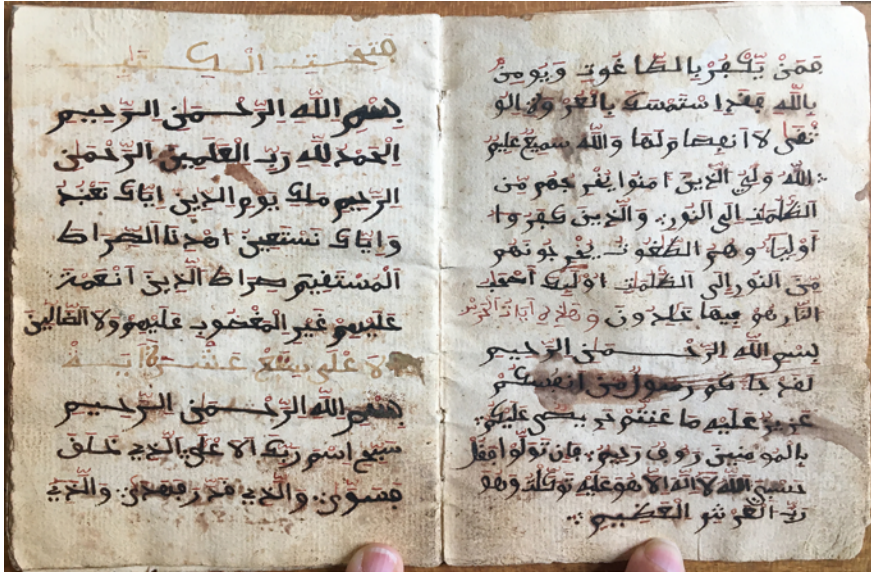 فَمَنْ يَكْفُرْ بِالطَّاغُوتِ وَيُومِنْ
بِاللَّهِ فَقَدِ اسْتَمْسَكَ بِالْعُرْوَةِ الْوُ
ثْقَى لَا انفِصَامَ لَهَا وَاللَّهُ سَمِيعٌ عَلِيمٌ
اللَّهُ وَلِيُّ الَّذِينَ امَنُوا يُخْرِجُهُم مِّنَ
الظُّلُمَٰتِ إِلَى النُّورِ وَالَّذِينَ كَفَرُوا
أَوْلِيَا وُهُمُ الطَّٰغُوتُ يُخْرِجُونَهُم
مِّنَ النُّورِ إِلَى الظُّلُمَٰتِ اوْلَيِكَ أَصْحَٰبُ
النَّارِ هُمْ فِيهَا خَٰلِدُونَ
بِسْمِ اللَّهِ الرَّحْمَٰنِ الرَّحِيمِ
لَقَدْ جَاكُمْ رَسُولٌ مِّنَ انفُسِكُمْ
عَزِيزٌ عَلَيْهِ مَا عَنِتُّمْ حَرِيصٌ عَلَيْكُم
بِالْمُومِنِينَ رَوُفٌ رَّحِيمٌ فَإِن تَوَلَّوْا فَقُلْ
حَسْبِيَ اللَّهُ لَا إِلَٰهَ إِلَّا هُوَ عَلَيْهِ تَوَكَّلْتُ وَهُوَ
رَبُّ الْعَرْشِ الْعَظِيمِ
بِسْمِ اللَّهِ الرَّحْمَٰنِ الرَّحِيمِ
الْحَمْدُ لِلَّهِ رَبِّ الْعَٰلَمِينَ الرَّحْمَٰنِ
الرَّحِيمِ مَلِكِ يَوْمِ الدِّينِ إِيَّاكَ نَعْبُدُ
وَإِيَّاكَ نَسْتَعِينُ اهْدِنَا الصِّرَاطَ
الْمُسْتَقِيمَ صِرَاطَ الَّذِينَ أَنْعَمْتَ
عَلَيْهِمْ غَيْرِ الْمَغْضُوبِ عَلَيْهِمْ وَلَا الضَّالِّينَ
لاَعْلَى تِسْعَ عَشْرَةَ آيَةً
بِسْمِ اللَّهِ الرَّحْمَٰنِ الرَّحِيمِ
سَبِّحِ اسْمَ رَبِّكَ الَاعْلَى الَّذِي خَلَقَ
فَسَوَّى وَالَّذِي قَدَّرَ فَهَدَى وَالَّذِي